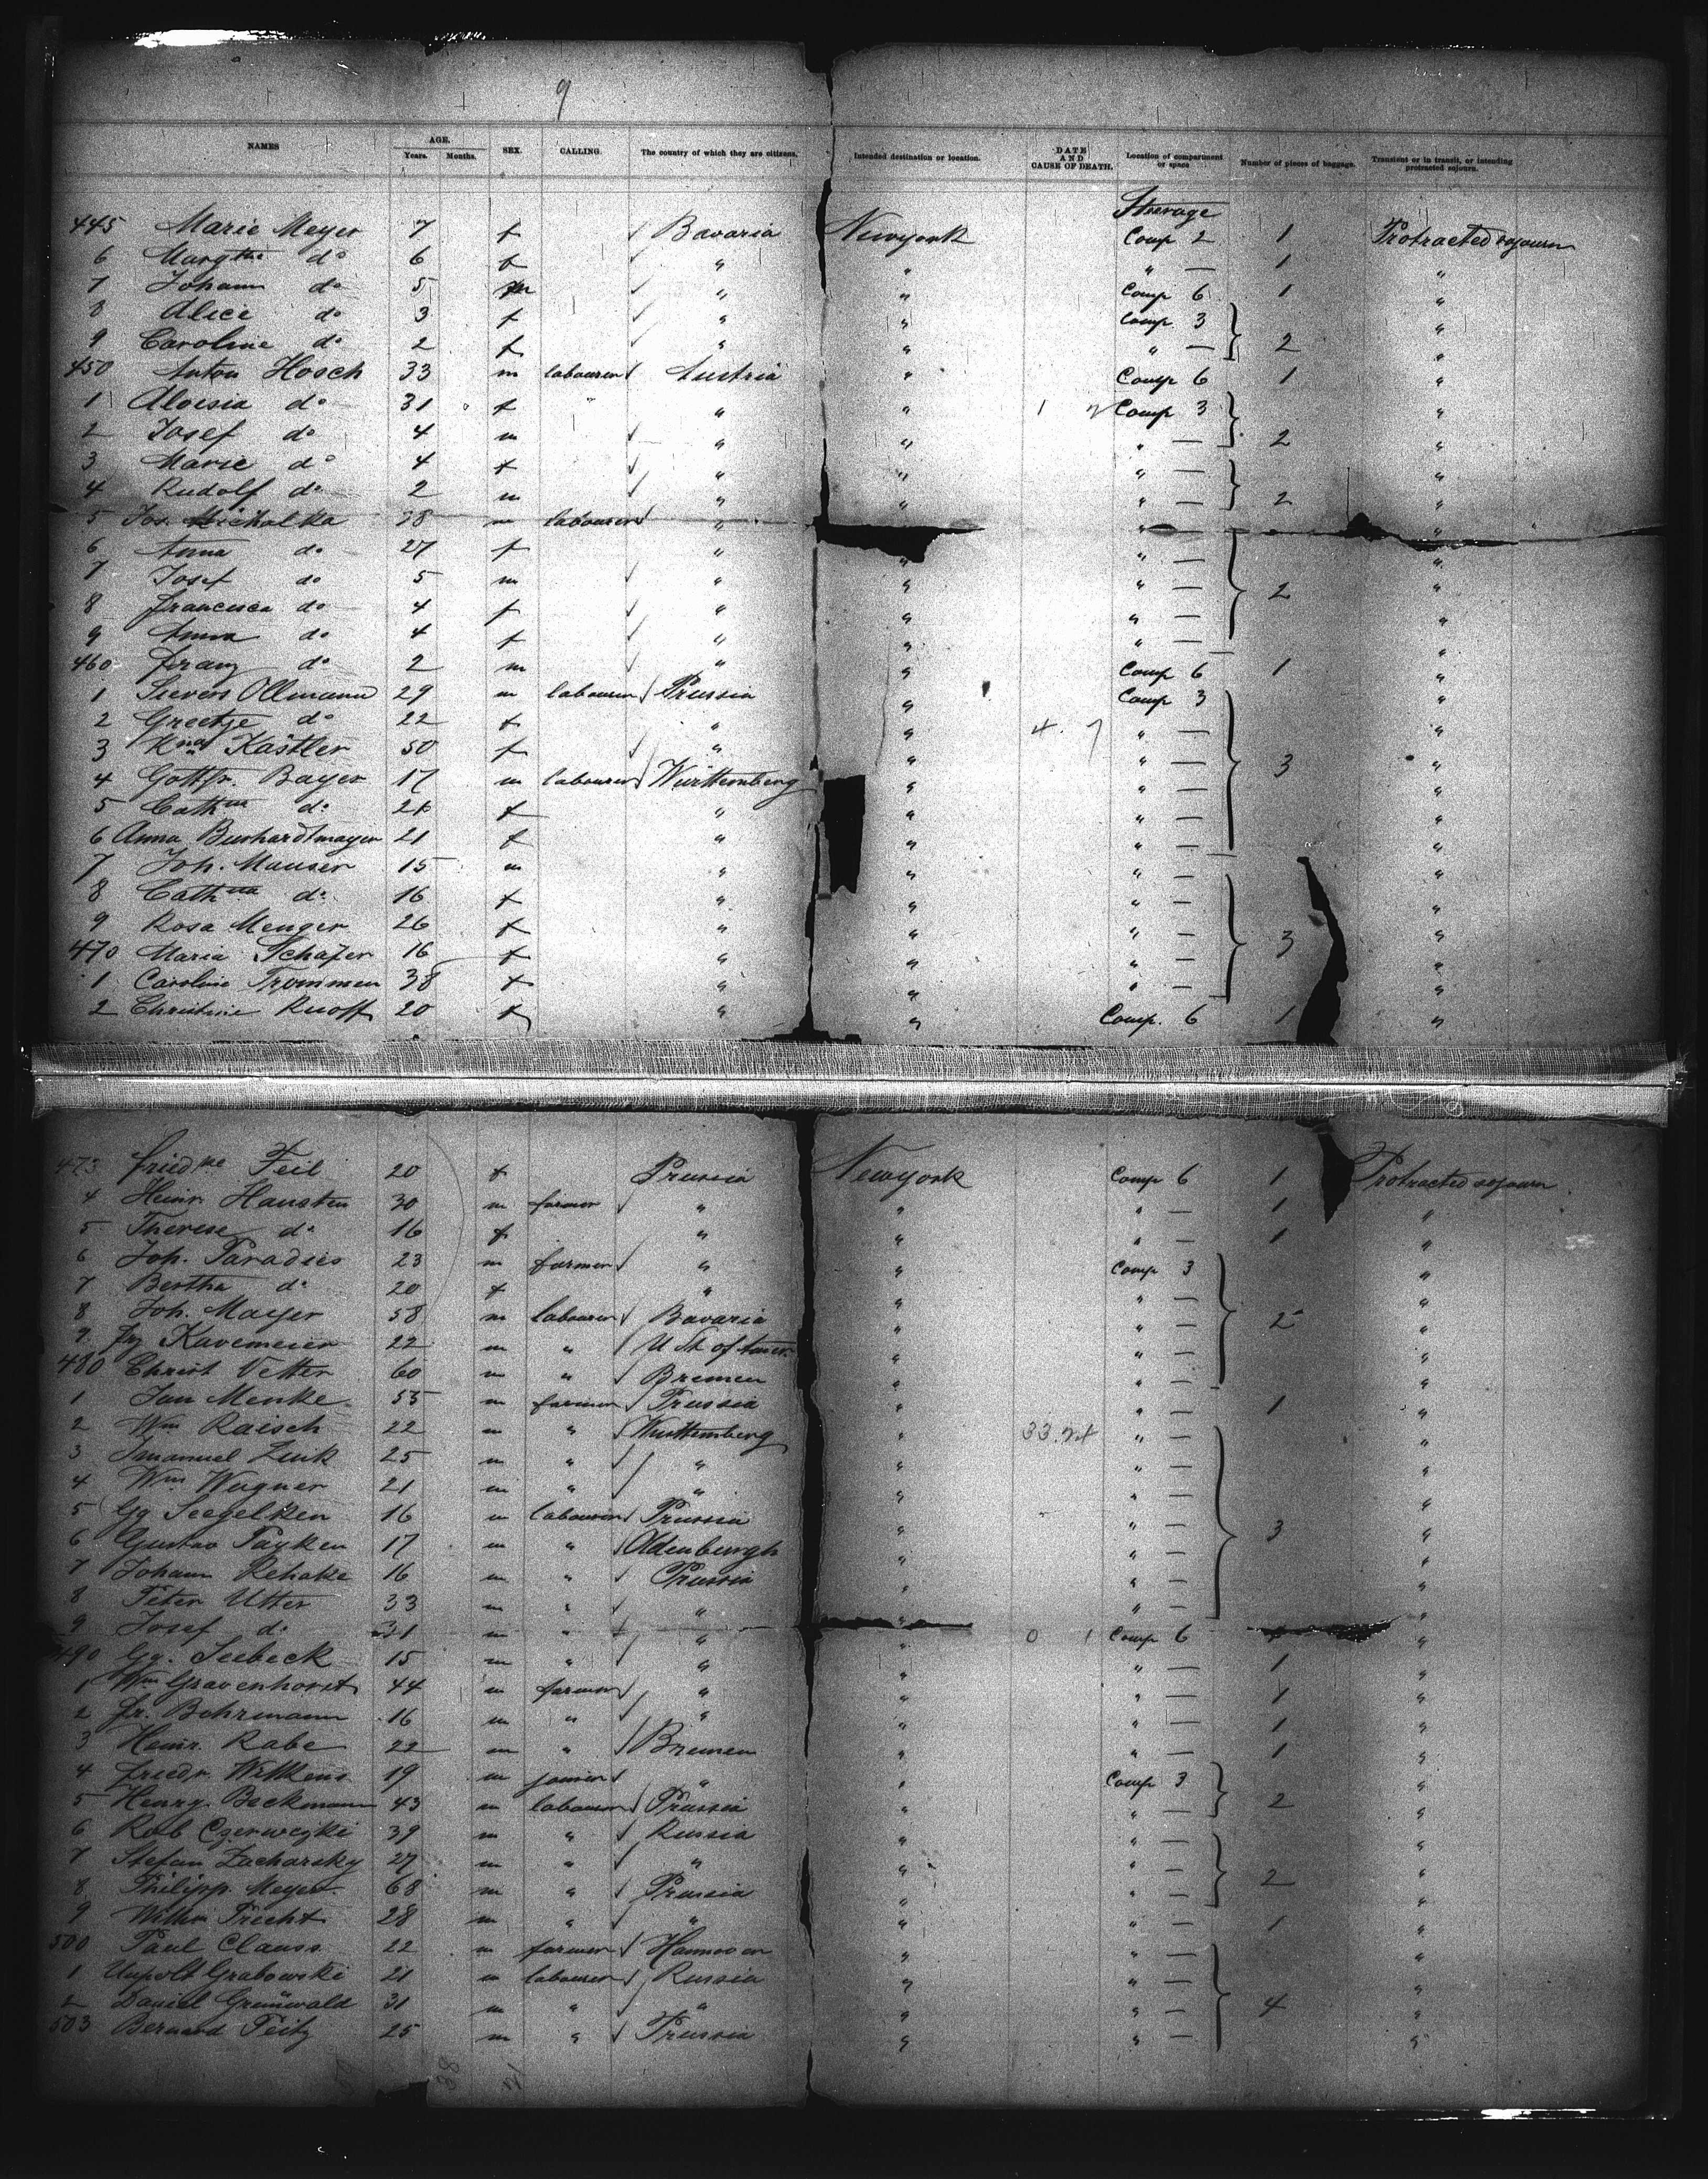 9
NAMES AGE. Years. Months. SEX. CALLING. The country of which they are citizens. Intended destination or location. DATE AND CAUSE OF DEATH. Location of compartment or space Number of pieces of baggage. Transient or in transit, or intending protracted sojourn.
Steerage
445 Marie Meyer 7 f ✓ Bavaria Newyork Comp 2 1 Protracted sojourn
6 Margthe do 6 f ✓ " " " — 1 "
7 Johann do 5 m ✓ " " Comp 6 1 "
8 Alice do 3 f ✓ " " Comp 3 "
9 Caroline do 2 f ✓ " " " — 2 "
450 Anton Hosch 33 m labourer ✓ Austria " Comp 6 1 "
1 Aloisia do 31 f " " Comp 3 "
2 Josef do 4 m ✓ " " " — 2 "
3 Marie do 4 f ✓ " " " — "
4 Rudolf do 2 m ✓ " " " — 2 "
5 Jos. Michalka 38 m labourer ✓ " " "
6 Anna do 27 f " " " — "
7 Josef do 5 m ✓ " " " — 2 "
8 Francisca do 4 f ✓ " " " — "
9 Anna do 4 f ✓ " " " — "
460 Franz do 2 m ✓ " " Comp 6 1 "
1 Sievers Ollmann 29 m labourer ✓ Prussia " Comp 3 "
2 Greetje do 22 f " " 4. 7 " — "
3 Kna Kästler 50 f ✓ " " " — 3 "
4 Gottfr. Bayer 17 m labourer ✓ Württemberg " " — "
5 Cathna do 21 f " " " — "
6 Anna Burhardtmayer 21 f " " " — "
7 Joh. Mauser 15 m " " " — "
8 Cathna do 16 f " " " — "
9 Rosa Menger 26 f " " " — 3 "
470 Maria Schäfer 16 f " " " — "
1 Caroline Trommer 38 f " " " — "
2 Christine Ruoff 20 f " " Comp. 6 1 "
473 Friedke Feil 20 f Prussia Newyork Comp 6 1 Protracted sojourn
4 Heinr. Hausten 30 m farmer ✓ " " " — 1 "
5 Therese do 16 f " " " — 1 "
6 Joh. Paradies 23 m farmer ✓ " " Comp 3 "
7 Bertha do 20 f " " " — "
8 Joh. Mayer 58 m labourer ✓ Bavaria " " — 2 "
9 Kavemeier 22 m " ✓ U St of Amer. " " — "
480 Christ Vetter 60 m " ✓ Bremen " " — "
1 Jan Menke 55 m farmer ✓ Prussia " " — 1 "
2 Wm Raisch 22 m " ✓ Württemberg " " — "
3 Imanuel Zink 25 m " ✓ " " " — "
4 Wm Wagner 21 m " ✓ " " " — "
5 Gg Seegelken 16 m labourer ✓ Prussia " " — "
6 Gustav Tayken 17 m " ✓ Oldenburgh " " — 3 "
7 Johann Rehatke 16 m " ✓ Prussia " " — "
8 Peter Utter 33 m " ✓ " " " — "
9 Josef do 31 m " ✓ " " 0 1 Comp 6 "
490 Gg. Seebeck 15 m " ✓ " " " — 1 "
1 Wm Gravenhorst 44 m farmer ✓ " " " — 1 "
2 Fr. Bohrmann 16 m " ✓ " " " — 1 "
3 Heinr. Rabe 22 m " ✓ Bremen " " — 1 "
4 Friedr. Wilkens 19 m joiner ✓ " " Comp 3 "
5 Henry Beckmann 43 m labourer ✓ Prussia " " — 2 "
6 Rob Czerwejki 39 m " ✓ Russia " " — "
7 Stefan Zacharsky 27 m " ✓ " " " — "
8 Philipp Meyer 68 m " ✓ Prussia " " — 2 "
9 Willm Precht 28 m " ✓ " " " — 1 "
500 Paul Clauss 22 m farmer ✓ Hannover " " — "
1 Grabowski 21 m labourer ✓ Russia " " — "
2 Daniel Grünwald 31 m " ✓ " " " — 4 "
503 Bernard Feitz 25 m " ✓ Prussia " " — "